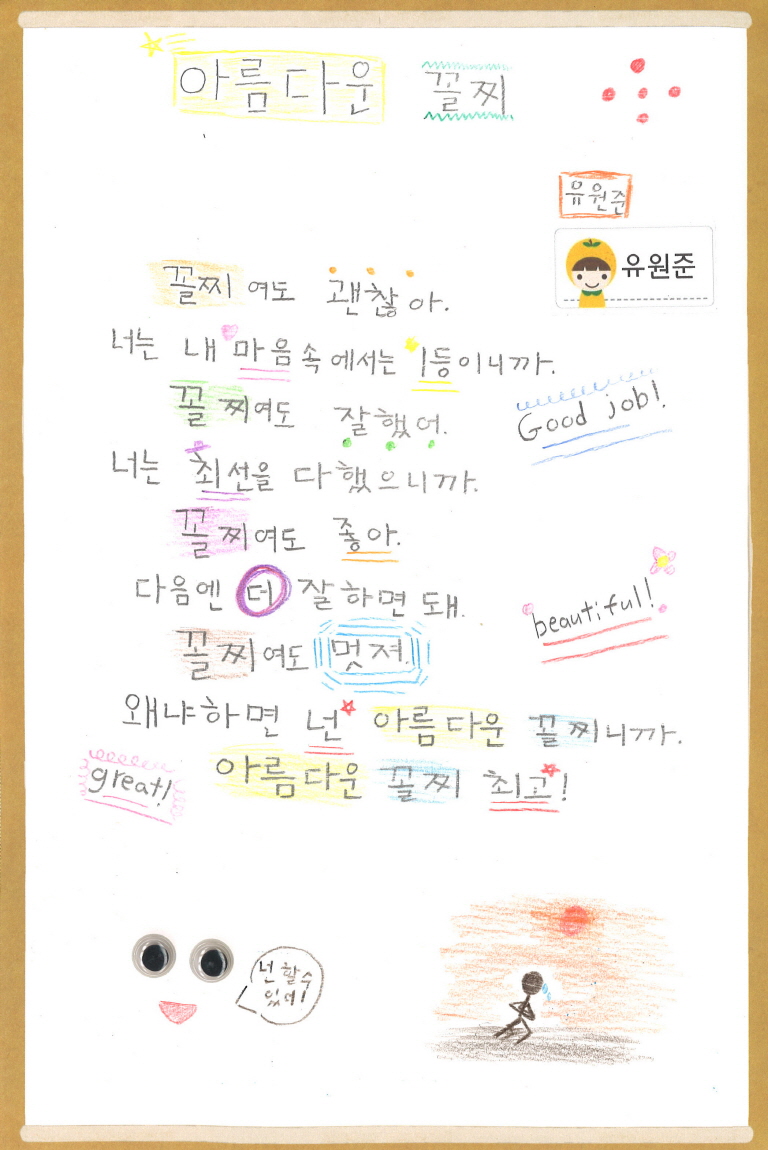 아름다운 꼴찌
유원준
유원준
꼴찌여도 괜찮아.
너는 내 마음속에서는 1등이니까.
꼴찌여도 잘했어.
Good job!
너는 최선을 다했으니까.
꼴찌여도 좋아.
다음엔 더 잘하면 돼.
beautiful!
꼴찌여도 멋져.
왜냐하면 넌 아름다운 꼴찌니까.
great!
아름다운 꼴찌 최고!
넌 할 수
있어!